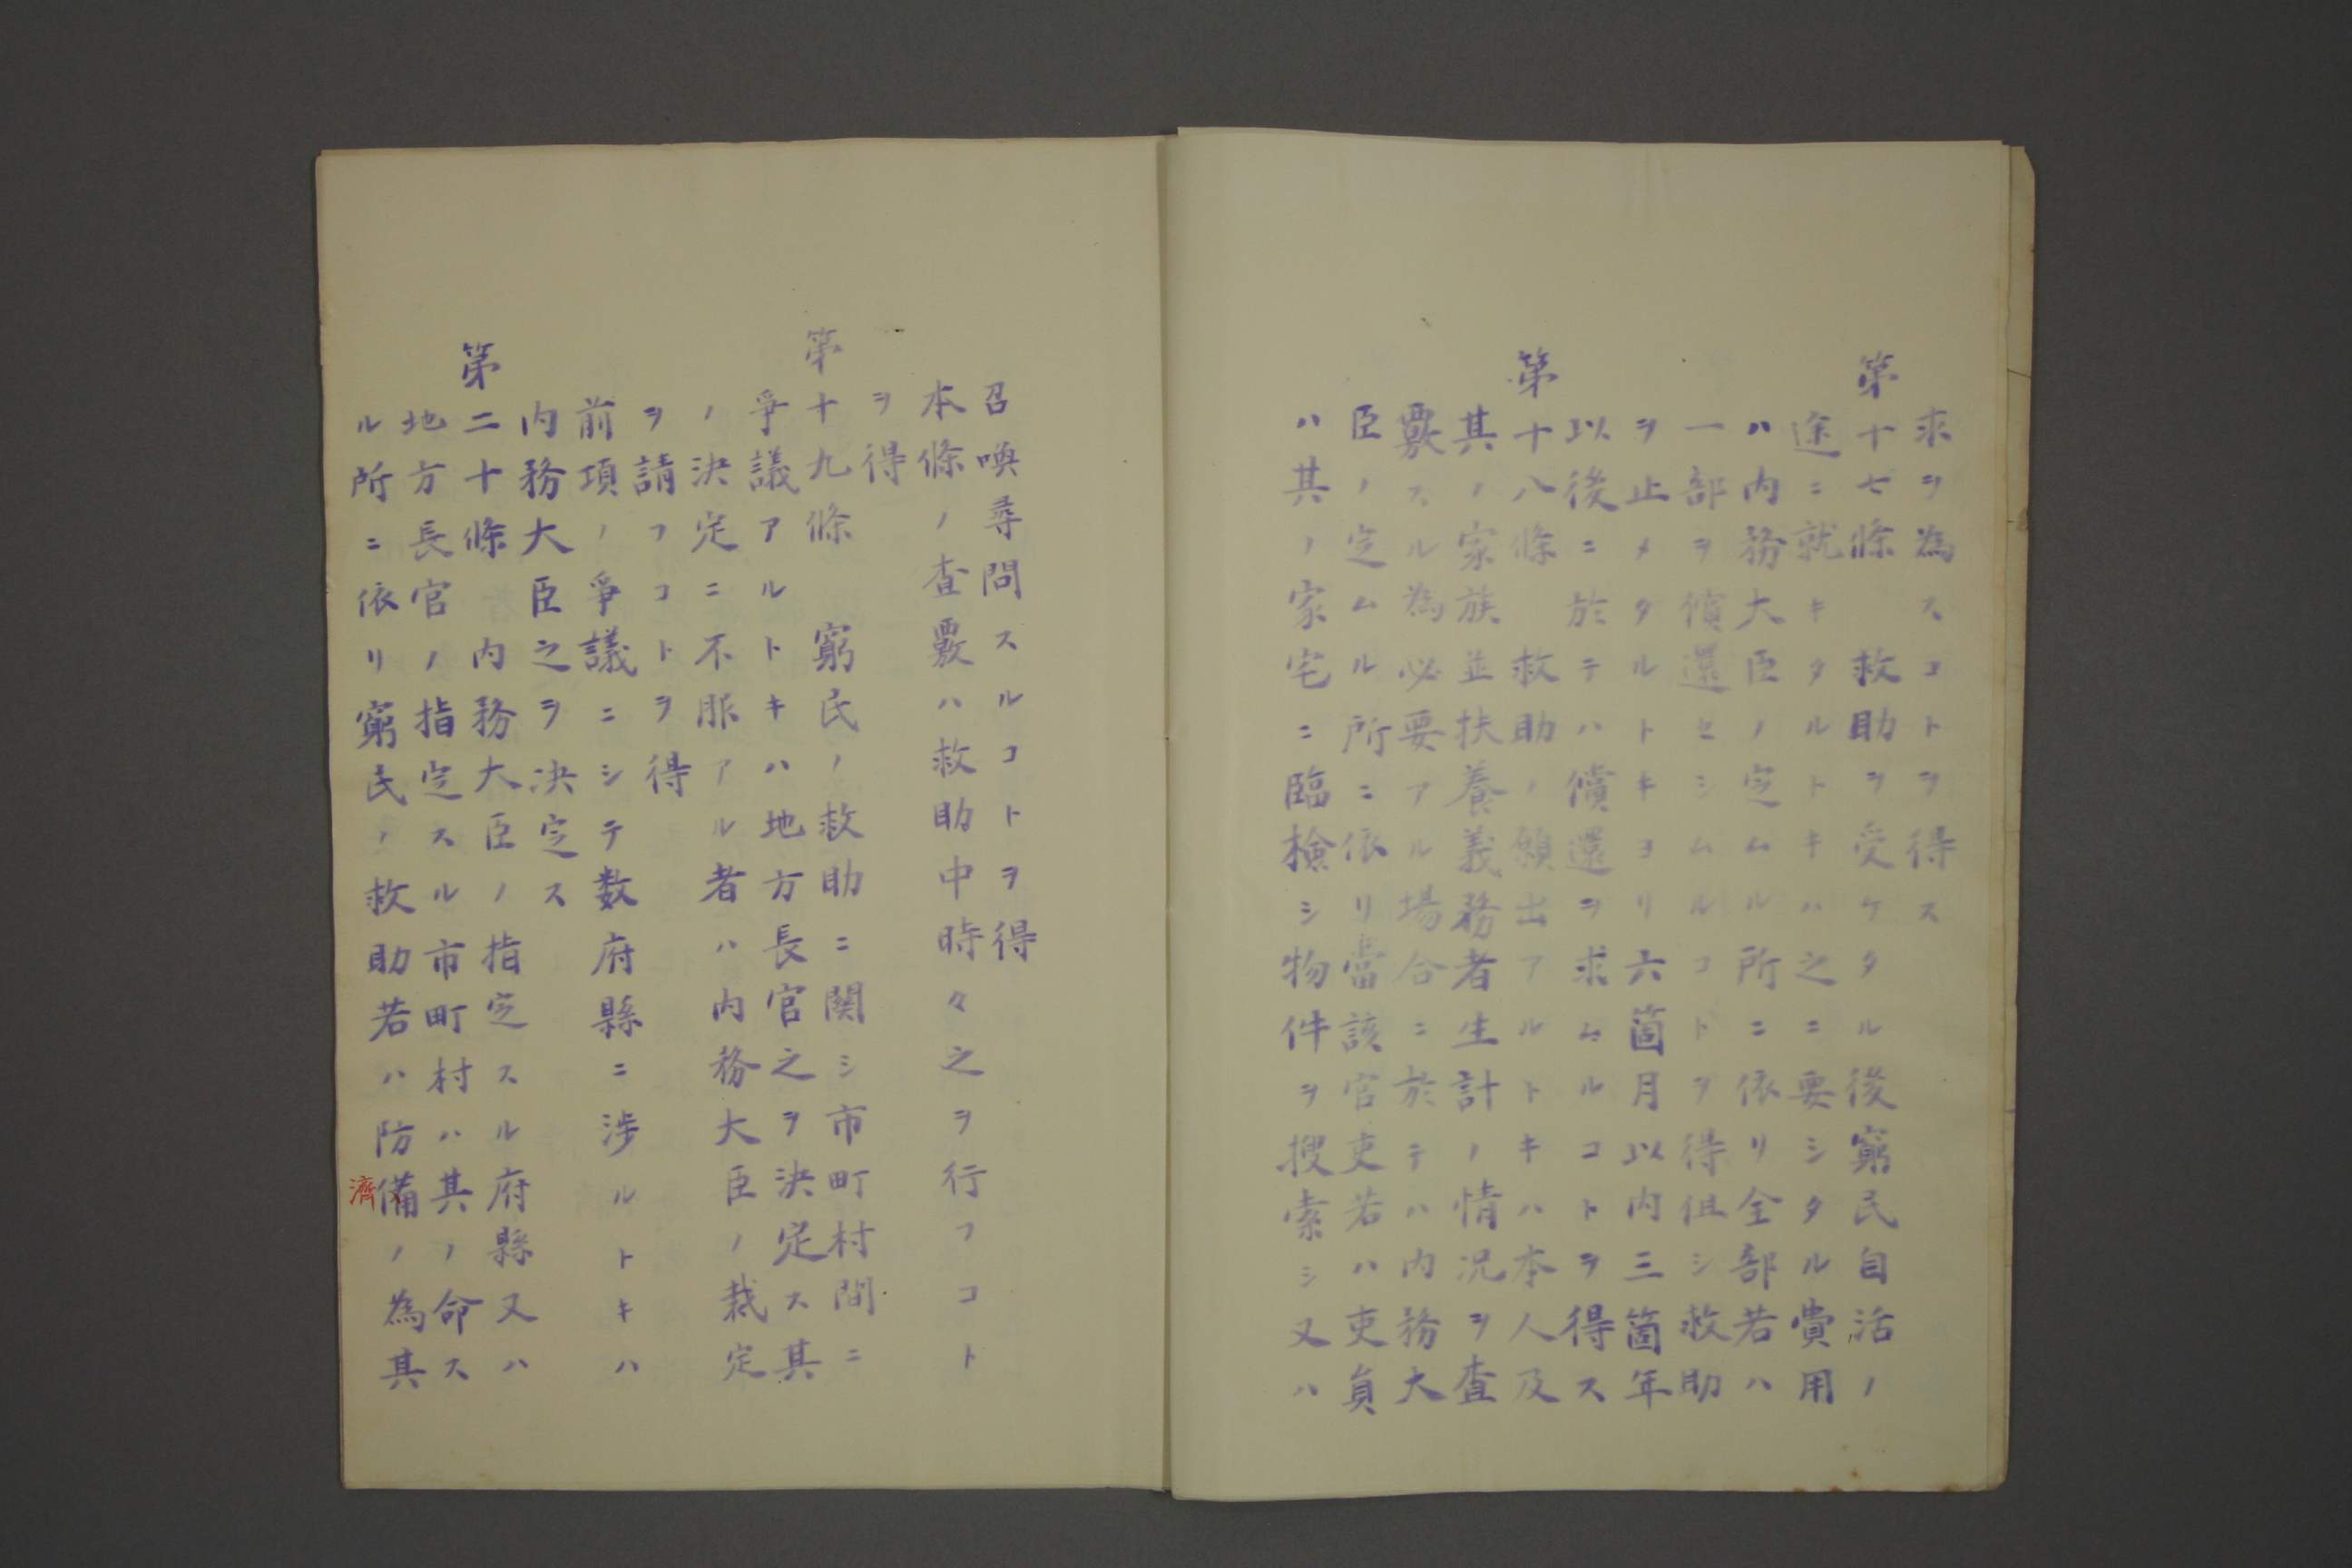 求ヲ為スコトヲ得ス
第十七條　救助ヲ受ケタル後窮民自活ノ
途ニ就キタルトキハ之ニ要シタル費用
ハ内務大臣ノ定ムル所ニ依リ全部若ハ
一部ヲ償還セシムルコトヲ得但シ救助
ヲ止メタルトキヨリ六箇月以内三箇年
以後ニ於テハ償還ヲ求ムルコトヲ得ス
第十八條　救助ノ願出アルトキハ本人及
其ノ家族並扶養義務者生計ノ情況ヲ査
覈スル為必要アル場合ニ於テハ内務大
臣ノ定ムル所ニ依リ當該官吏若ハ吏員
ハ其ノ家宅ニ臨檢シ物件ヲ搜索シ又ハ
召喚尋問スルコトヲ得
本條ノ査覈ハ救助中時々之ヲ行フコト
ヲ得
第十九條　窮民ノ救助ニ関シ市町村間ニ
爭議アルトキハ地方長官之ヲ決定ス其
ノ決定ニ不服アル者ハ内務大臣ノ裁定
ヲ請フコトヲ得
前項ノ爭議ニシテ数府縣ニ涉ルトキハ
内務大臣之ヲ決定ス
第二十條　内務大臣ノ指定スル府縣又ハ
地方長官ノ指定スル市町村ハ其ノ命ス
ル所ニ依リ窮民ノ救助若ハ防備ノ為其
濟